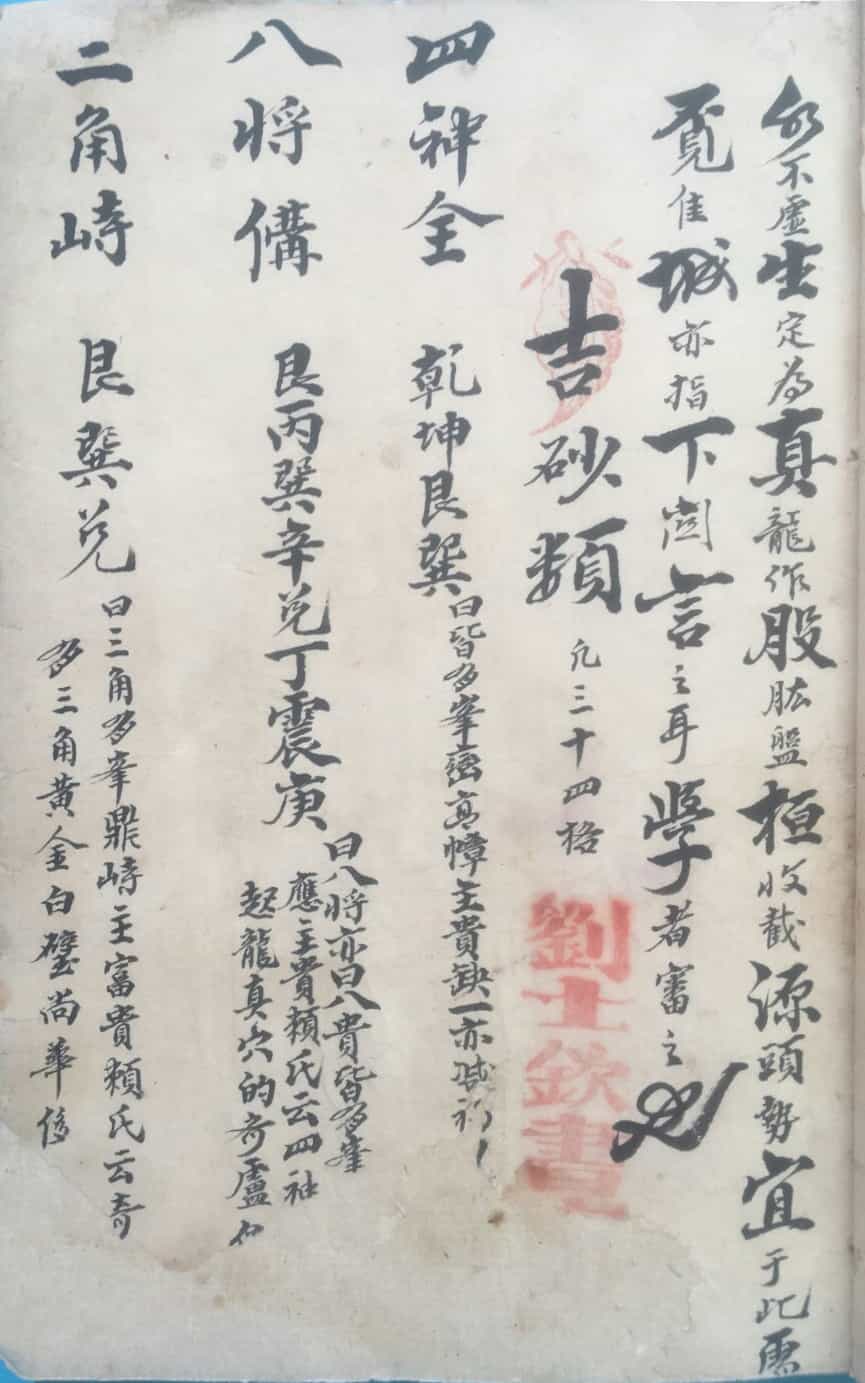 不虛生定為真龍作股肱盤桓收截源頭勢宜于此處
覓佳城亦指下關言之耳學者審之
吉砂類 凡三十四格
劉士欽書
四神全 乾坤艮巽 曰皆多峯 高幛主貴缺一亦減
八將備 艮丙巽辛兌丁震庚 曰八將亦曰八貴皆多峯
應主貴賴氏云四神
起龍真穴的奇盧
二角峙 艮巽兌 曰三角多峯鼎峙主富貴賴氏云奇
多三角黃金白璧尚華侈